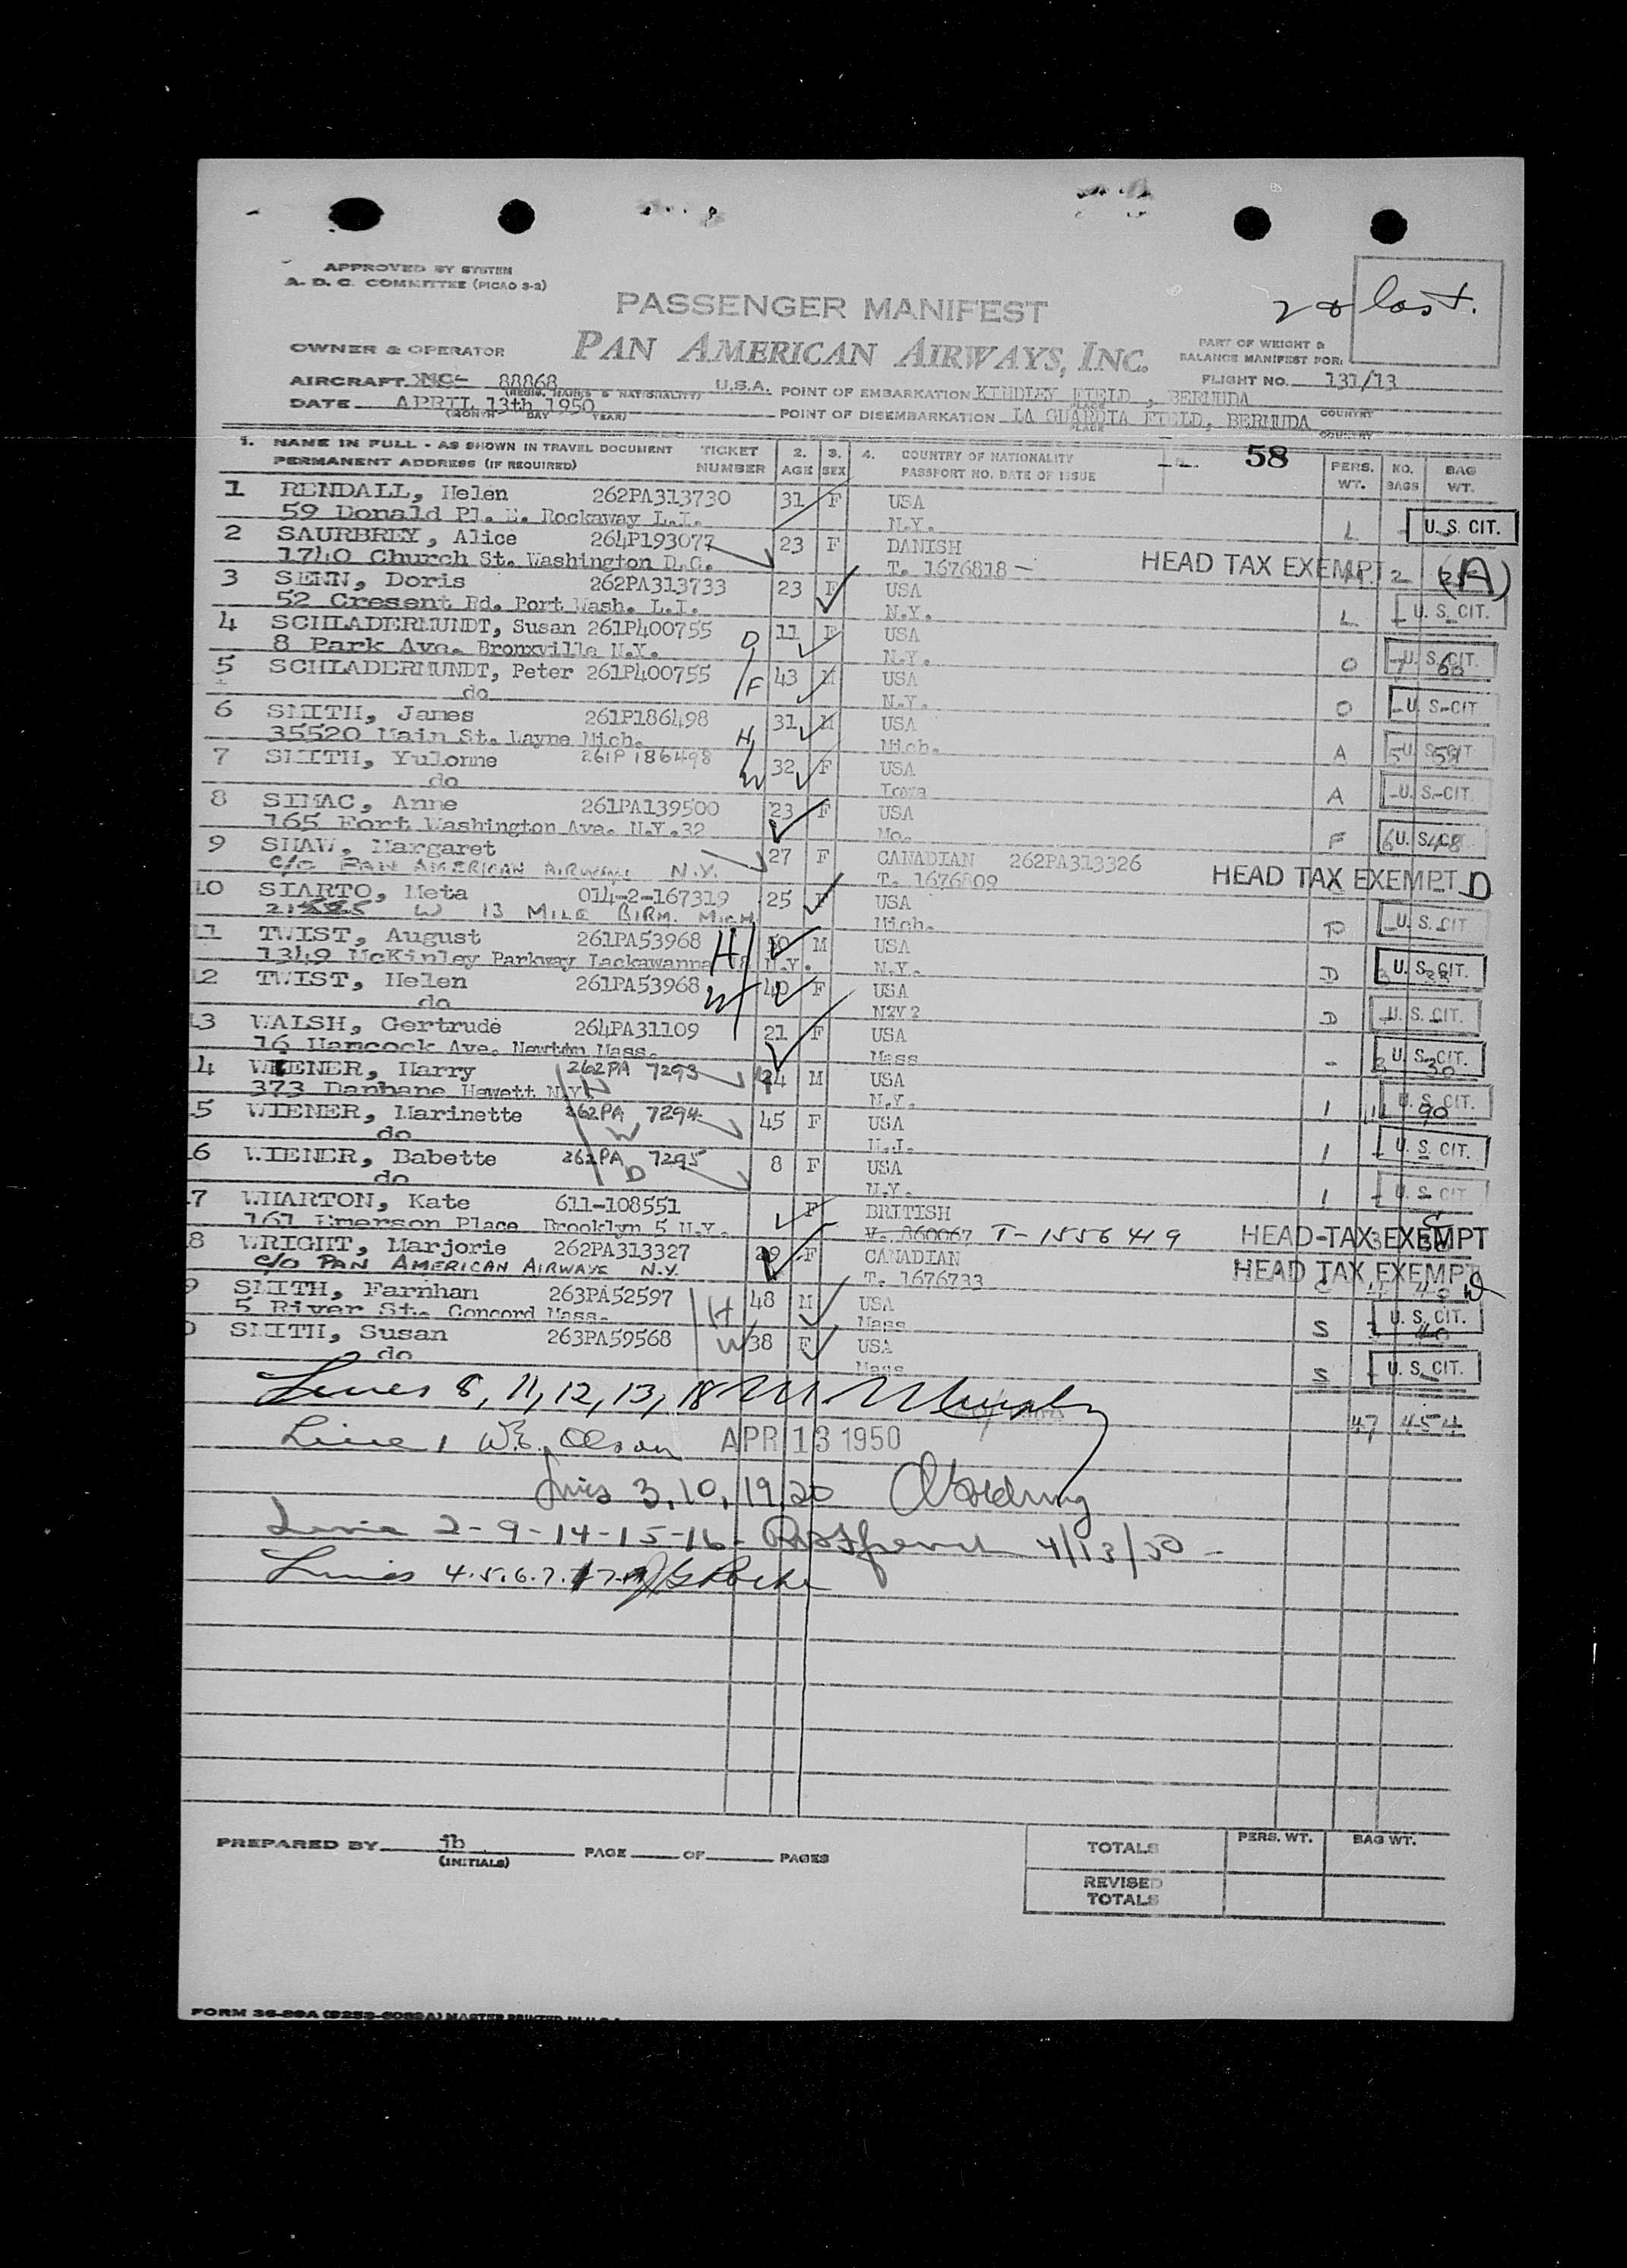 APPROVED BY SYSTEM
A. D. C. COMMITTEE (PICAO 3-2)
20 last.
PASSENGER MANIFEST
OWNER & OPERATOR PAN AMERICAN AIRWAYS, INC.
PART OF WEIGHT &
BALANCE MANIFEST FOR:
AIRCRAFT NC- 88868 U.S.A. POINT OF EMBARKATION KINDLEY FIELD, BERMUDA FLIGHT NO. 131/13
(REGIS. MARKS & NATIONALITY) PLACE COUNTRY
DATE APRIL 13th 1950 POINT OF DISEMBARKATION LA GUARDIA FIELD, BERMUDA
(MONTH DAY YEAR) PLACE COUNTRY
1. NAME IN FULL - AS SHOWN IN TRAVEL DOCUMENT TICKET 2. 3. 4. COUNTRY OF NATIONALITY 58 PERS. NO. BAG
PERMANENT ADDRESS (IF REQUIRED) NUMBER AGE SEX PASSPORT NO. DATE OF ISSUE WT. BAGS WT.
1 RENDALL, Helen 262PA313730 31 F USA
59 Donald Pl. E. Rockaway L.I. N.Y. L - U. S. CIT.
2 SAURBREY, Alice 264P193077 23 F DANISH
1740 Church St. Washington D.C. T. 1676818 - HEAD TAX EXEMPT 2 (A)
3 SENN, Doris 262PA313733 23 F USA
52 Cresent Rd. Port Wash. L.I. N.Y. L - U. S. CIT.
4 SCHLADERMUNDT, Susan 261P400755 D 11 F USA
8 Park Ave. Bronxville N.Y. N.Y. O 7 60 U. S. CIT.
5 SCHLADERMUNDT, Peter 261P400755 F 43 M USA
do N.Y. O - U. S. CIT
6 SMITH, James 261P186498 H 31 M USA
35520 Main St. Wayne Mich. Mich. A 5 59 U. S. CIT.
7 SMITH, Yulonne 261P186498 W 32 F USA
do A - U. S. CIT.
8 SIMAC, Anne 261PA139500 23 F USA
165 Fort Washington Ave. N.Y.32 Mo. F 6 48 U. S. CIT.
9 SHAW, Margaret 27 F CANADIAN 262PA313326
C/O PAN AMERICAN AIRWAYS N.Y. T. 1676809 HEAD TAX EXEMPT D
10 SIARTO, Meta 014-2-167319 25 F USA
W 13 MILE BIRM. MICH Mich. U. S. CIT.
11 TWIST, August 261PA53968 H M USA
1349 McKinley Parkway Lackawanna 18 N.Y. N.Y. D 3 U. S. CIT.
12 TWIST, Helen 261PA53968 W 40 F USA
do D - U. S. CIT.
13 WALSH, Gertrude 264PA31109 21 F USA
16 Hancock Ave. Newton Mass. Mass - 3 30 U. S. CIT.
4 WIENER, Harry 262PA 7293 44 M USA
373 Hewett N.Y. H N.Y. 1 11 90 U. S. CIT.
5 WIENER, Marinette 262PA 7294 45 F USA
do W N.J. 1 - U. S. CIT.
6 WIENER, Babette 262PA 7295 8 F USA
do D N.Y. 1 - U. S. CIT
7 WHARTON, Kate 611-108551 F BRITISH
161 Emerson Place Brooklyn 5 N.Y. V. 860067 T-1556419 HEAD-TAX EXEMPT
8 WRIGHT, Marjorie 262PA313327 29 F CANADIAN
C/O PAN AMERICAN AIRWAYS N.Y. T. 1676733 HEAD TAX EXEMPT
9 SMITH, Farnham 263PA52597 H 48 M USA
5 River St. Concord Mass. Mass S U. S. CIT.
0 SMITH, Susan 263PA59568 W 38 F USA
do Mass S - U. S. CIT.
Lines 8, 11, 12, 13, 18 M Murphy 47 454
Line 1 W.E. Olson APR 13 1950
Lines 3, 10, 19, 20
Line 2-9-14-15-16- 4/13/50 -
Lines 4.5.6.7.17
PREPARED BY jb PAGE OF PAGES
(INITIALS)
TOTALS PERS. WT. BAG WT.
REVISED
TOTALS